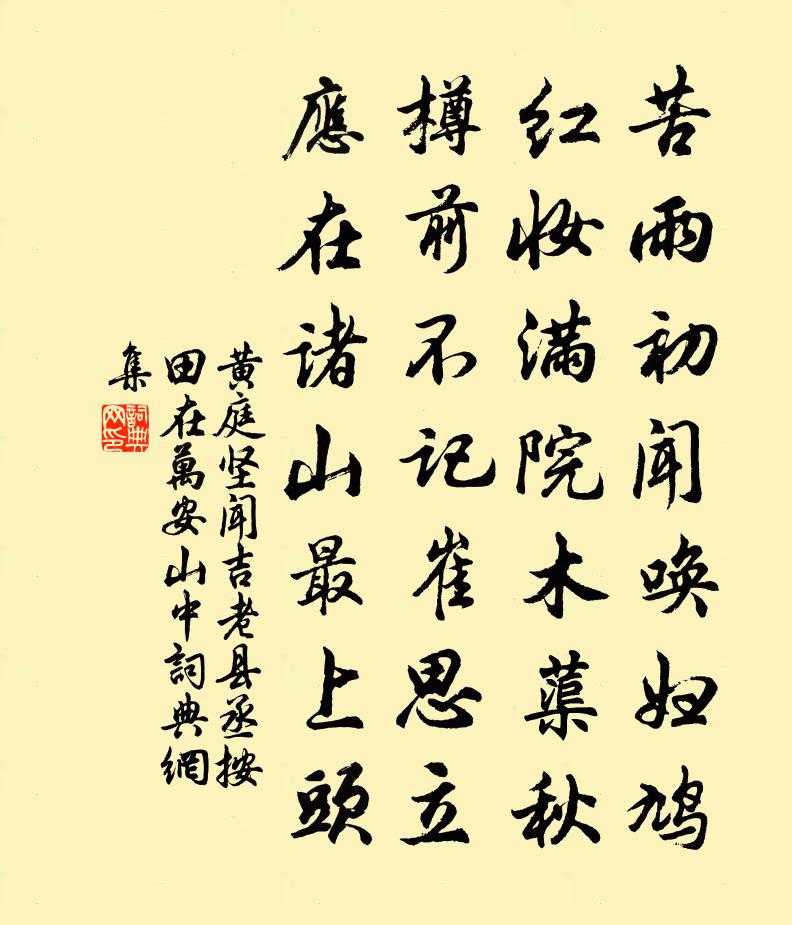 苦雨初闻唤妇鸠
红妆满院木蕖秋
樽前不记崔思立
應在诸山最上頭
黄庭坚闻吉老县丞按
田在萬安山中詞典網
集
詞典
网印